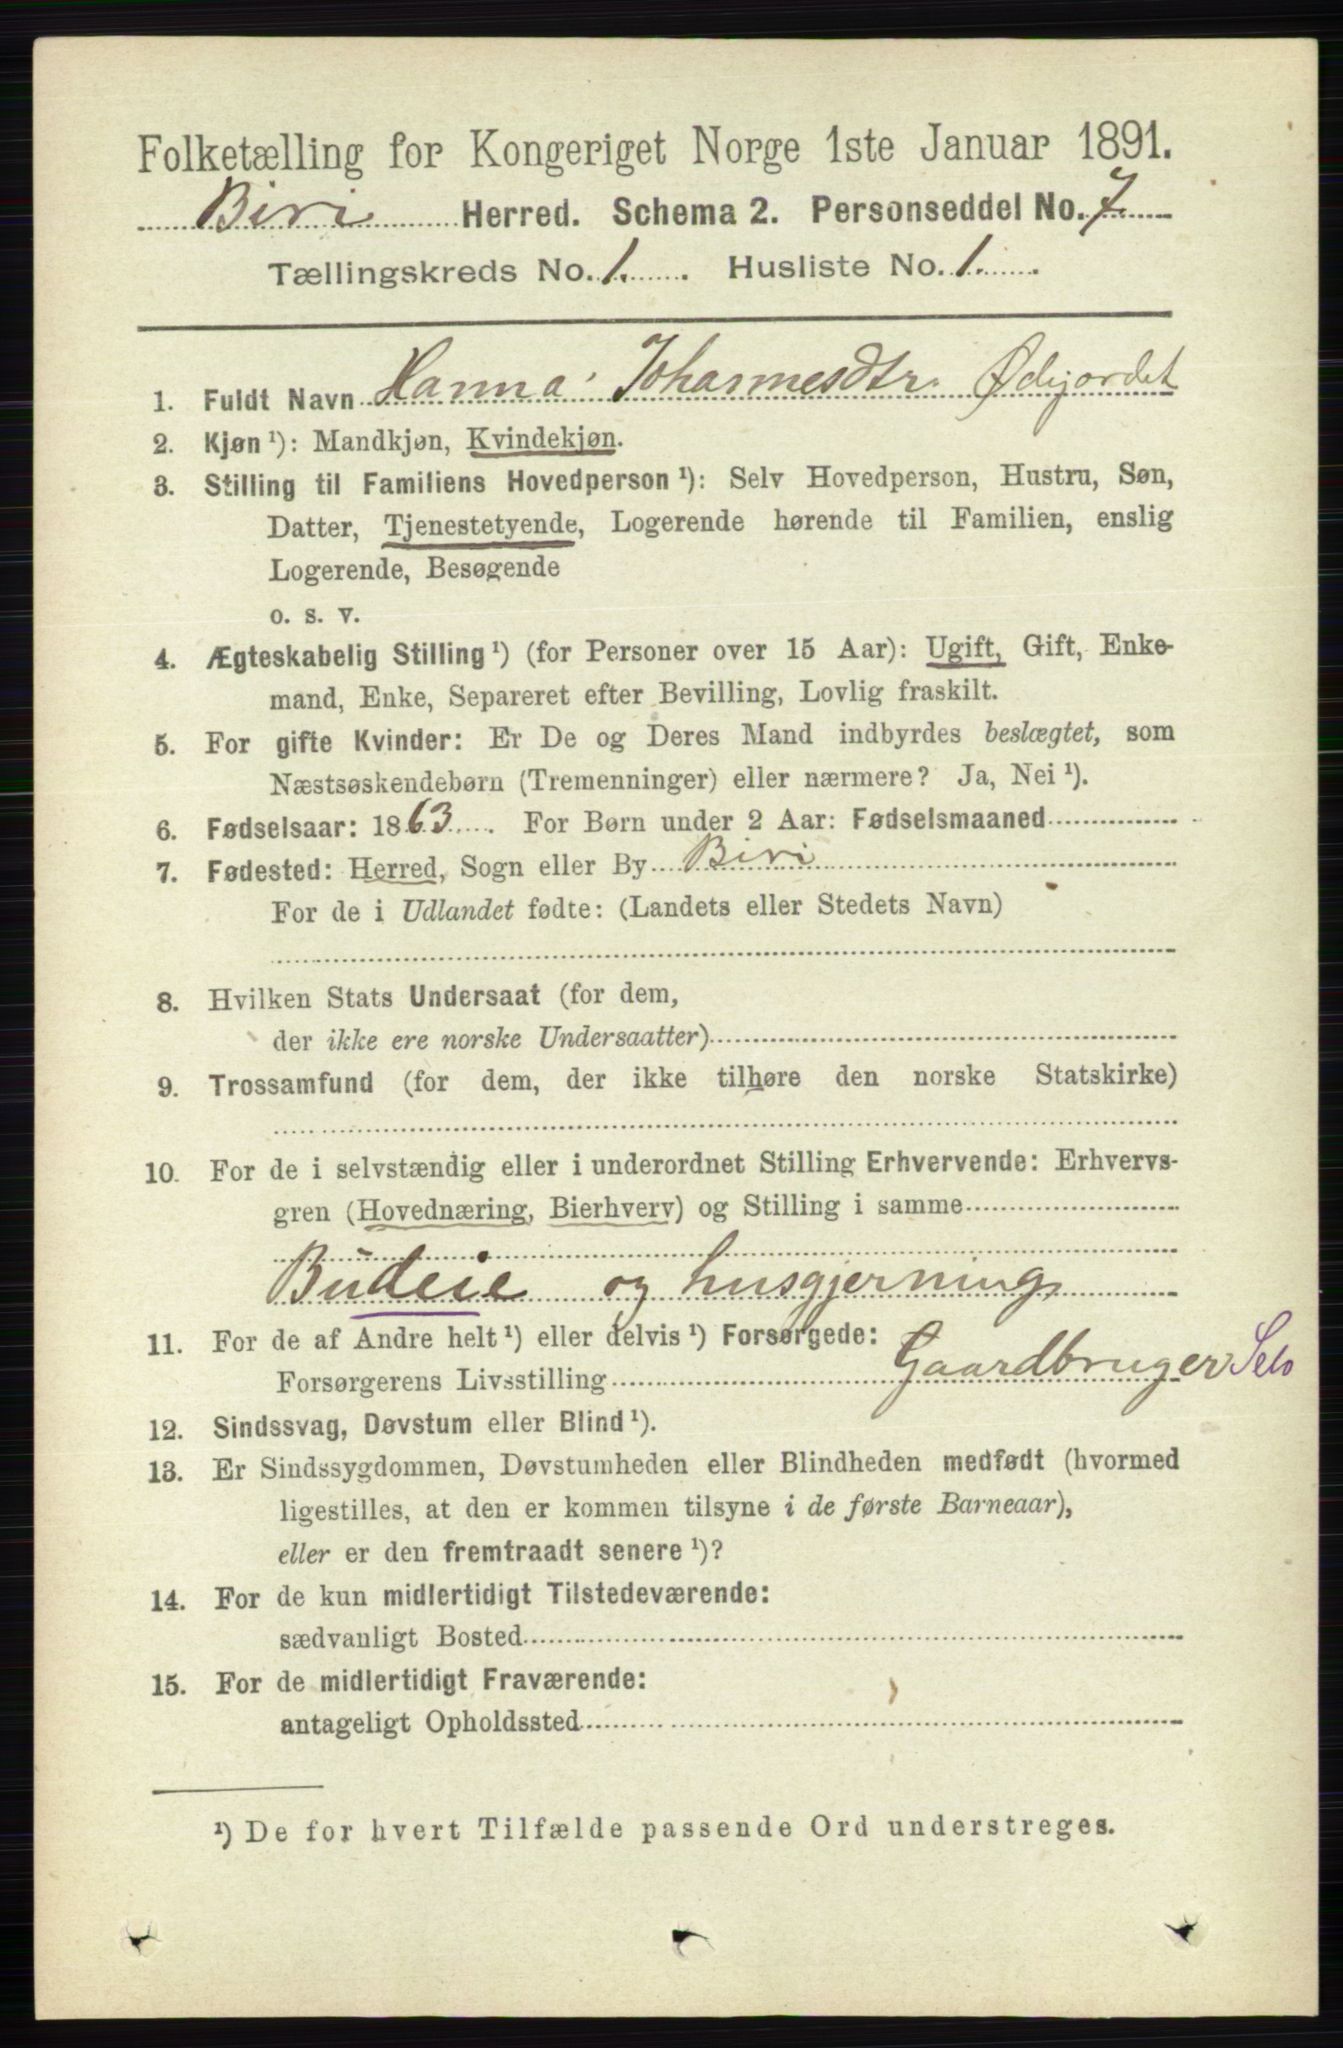 Folketælling for Kongeriget Norge 1ste Januar 1891.
Biri Herred. Schema 2. Personseddel No. 7
Tællingskreds No. 1. Husliste No. 1.
1. Fuldt Navn Hanna Johannesdtr. Ødejordet
2. Kjøn ¹): Mandkjøn, Kvindekjøn.
3. Stilling til Familiens Hovedperson ¹): Selv Hovedperson, Hustru, Søn,
Datter, Tjenestetyende, Logerende hørende til Familien, enslig
Logerende, Besøgende
o. s. v.
4. Ægteskabelig Stilling ¹) (for Personer over 15 Aar): Ugift, Gift, Enke-
mand, Enke, Separeret efter Bevilling, Lovlig fraskilt.
5. For gifte Kvinder: Er De og Deres Mand indbyrdes beslægtet, som
Næstsøskendebørn (Tremenninger) eller nærmere? Ja, Nei ¹).
6. Fødselsaar: 1863. For Børn under 2 Aar: Fødselsmaaned
7. Fødested: Herred, Sogn eller By Biri
For de i Udlandet fødte: (Landets eller Stedets Navn)
8. Hvilken Stats Undersaat (for dem,
der ikke ere norske Undersaatter)
9. Trossamfund (for dem, der ikke tilhøre den norske Statskirke)
10. For de i selvstændig eller i underordnet Stilling Erhvervende: Erhvervs-
gren (Hovednæring, Bierhverv) og Stilling i samme
Budeie og husgjerning
11. For de af Andre helt ¹) eller delvis ¹) Forsørgede:
Forsørgerens Livsstilling Gaardbruger Selv
12. Sindssvag, Døvstum eller Blind ¹).
13. Er Sindssygdommen, Døvstumheden eller Blindheden medfødt (hvormed
ligestilles, at den er kommen tilsyne i de første Barneaar),
eller er den fremtraadt senere ¹)?
14. For de kun midlertidigt Tilstedeværende:
sædvanligt Bosted
15. For de midlertidigt Fraværende:
antageligt Opholdssted
¹) De for hvert Tilfælde passende Ord understreges.